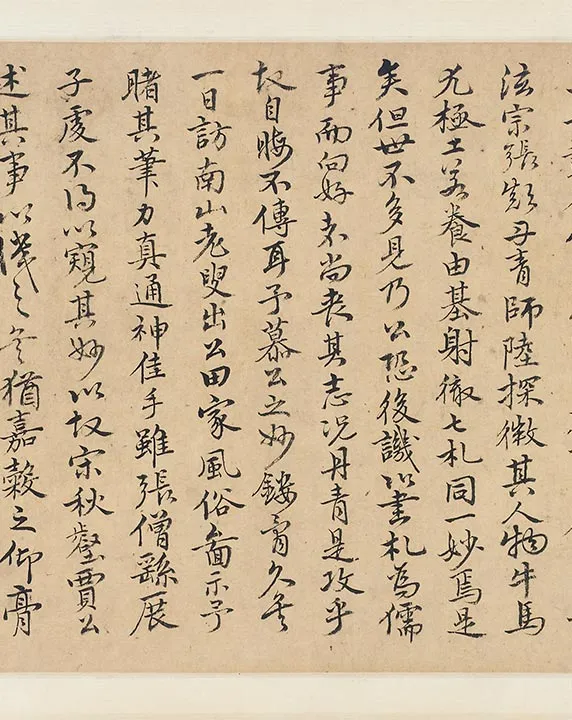 法宗張顛丹青師陸探微其人物牛馬
尤極工若養由基射徹七札同一妙焉是
矣但世不多見乃公恐後譏以書札為儒
事而向好未尚喪其志况丹青是攻乎
故自晦不傳耳予慕公之妙鏤骨久矣
一日訪南山老叟出公田家風俗畫示予
睹其筆力真通神佳手雖張僧繇展
子虔不得以窺其妙以故宋秋壑賈公
述其事以識之矣猶嘉穀之仰膏